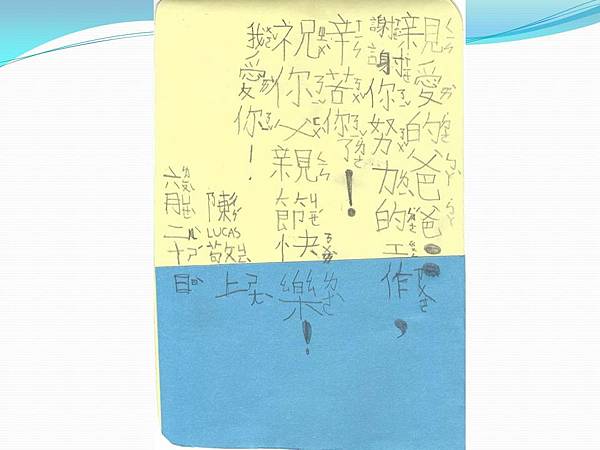 親愛的爸爸：
謝謝你努力的工作，
辛苦你了！
祝你父親節快樂！
我愛你！
陳LUCAS敬上
六月二十日